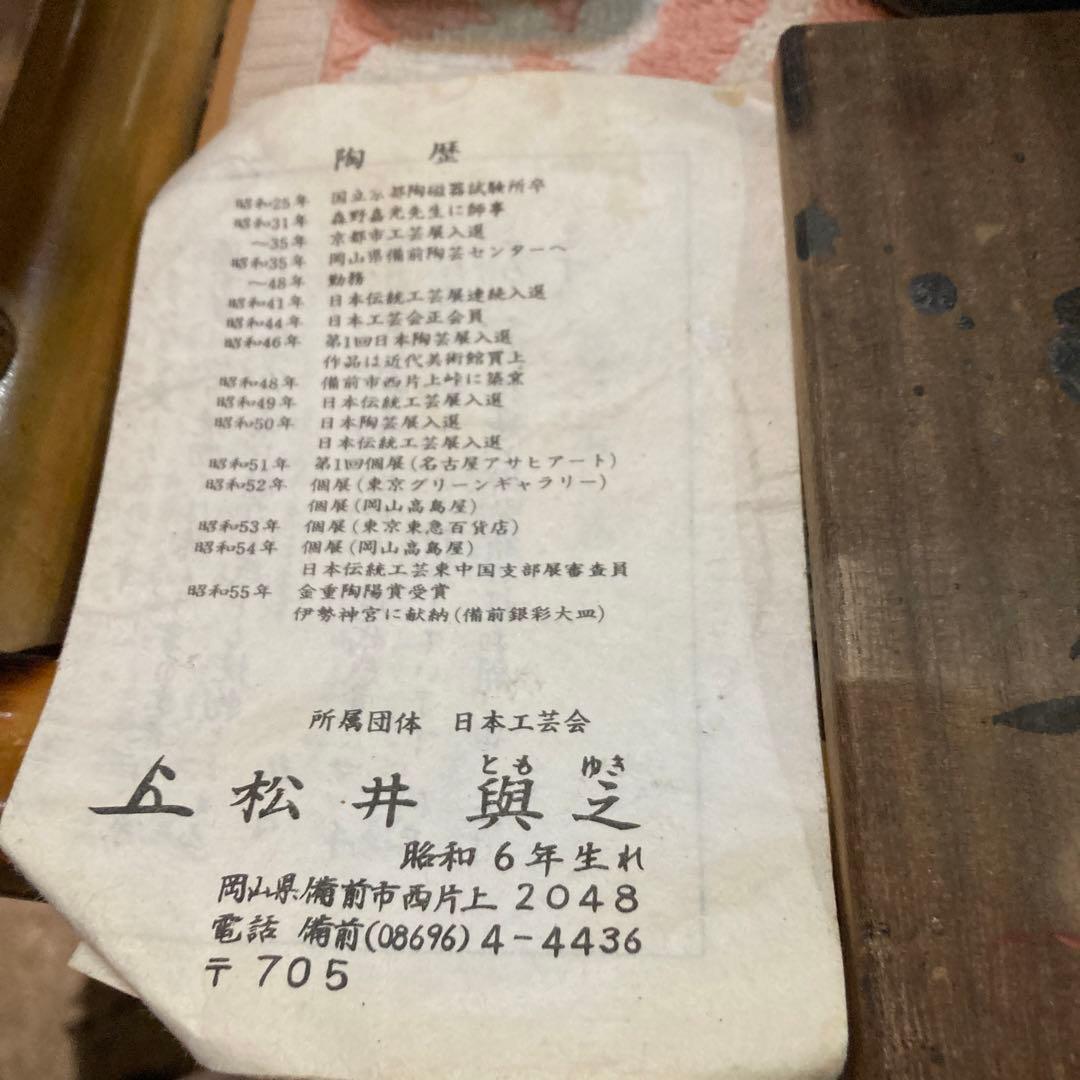 陶 歴
昭和25年 国立京都陶磁器試験所卒
昭和31年 森野嘉光先生に師事
〜35年 京都市工芸展入選
昭和35年 岡山県備前陶芸センターへ
〜48年 勤務
昭和41年 日本伝統工芸展連続入選
昭和44年 日本工芸会正会員
昭和46年 第1回日本陶芸展入選
作品は近代美術館買上
昭和48年 備前市西片上峠に築窯
昭和49年 日本伝統工芸展入選
昭和50年 日本陶芸展入選
日本伝統工芸展入選
昭和51年 第1回個展(名古屋アサヒアート)
昭和52年 個展(東京グリーンギャラリー)
個展(岡山高島屋)
昭和53年 個展(東京東急百貨店)
昭和54年 個展(岡山高島屋)
日本伝統工芸東中国支部展審査員
昭和55年 金重陶陽賞受賞
伊勢神宮に献納(備前銀彩大皿)
所属団体 日本工芸会
とも ゆき
松井與之
昭和6年生れ
岡山県備前市西片上2048
電話 備前(08696)4-4436
〒705